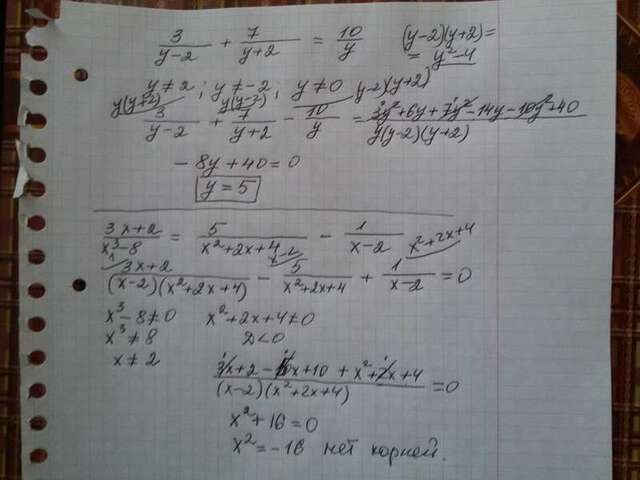 3/(y-2) + 7/(y+2) = 10/y (y-2)(y+2)=
= y²-4
y≠2 ; y≠-2 ; y≠0
y(y+2) y(y-2) (y-2)(y+2)
3/(y-2) + 7/(y+2) - 10/y = (3y²+6y+7y²-14y-10y²+40)/(y(y-2)(y+2))
-8y+40=0
y=5
(3x+2)/(x³-8) = 5/(x²+2x+4) - 1/(x-2)
1 x-2 x²+2x+4
(3x+2)/((x-2)(x²+2x+4)) - 5/(x²+2x+4) + 1/(x-2) = 0
x³-8≠0 x²+2x+4≠0
x³≠8 D<0
x≠2
(3x+2-5x+10+x²+2x+4)/((x-2)(x²+2x+4)) = 0
x²+16=0
x²=-16 нет корней.